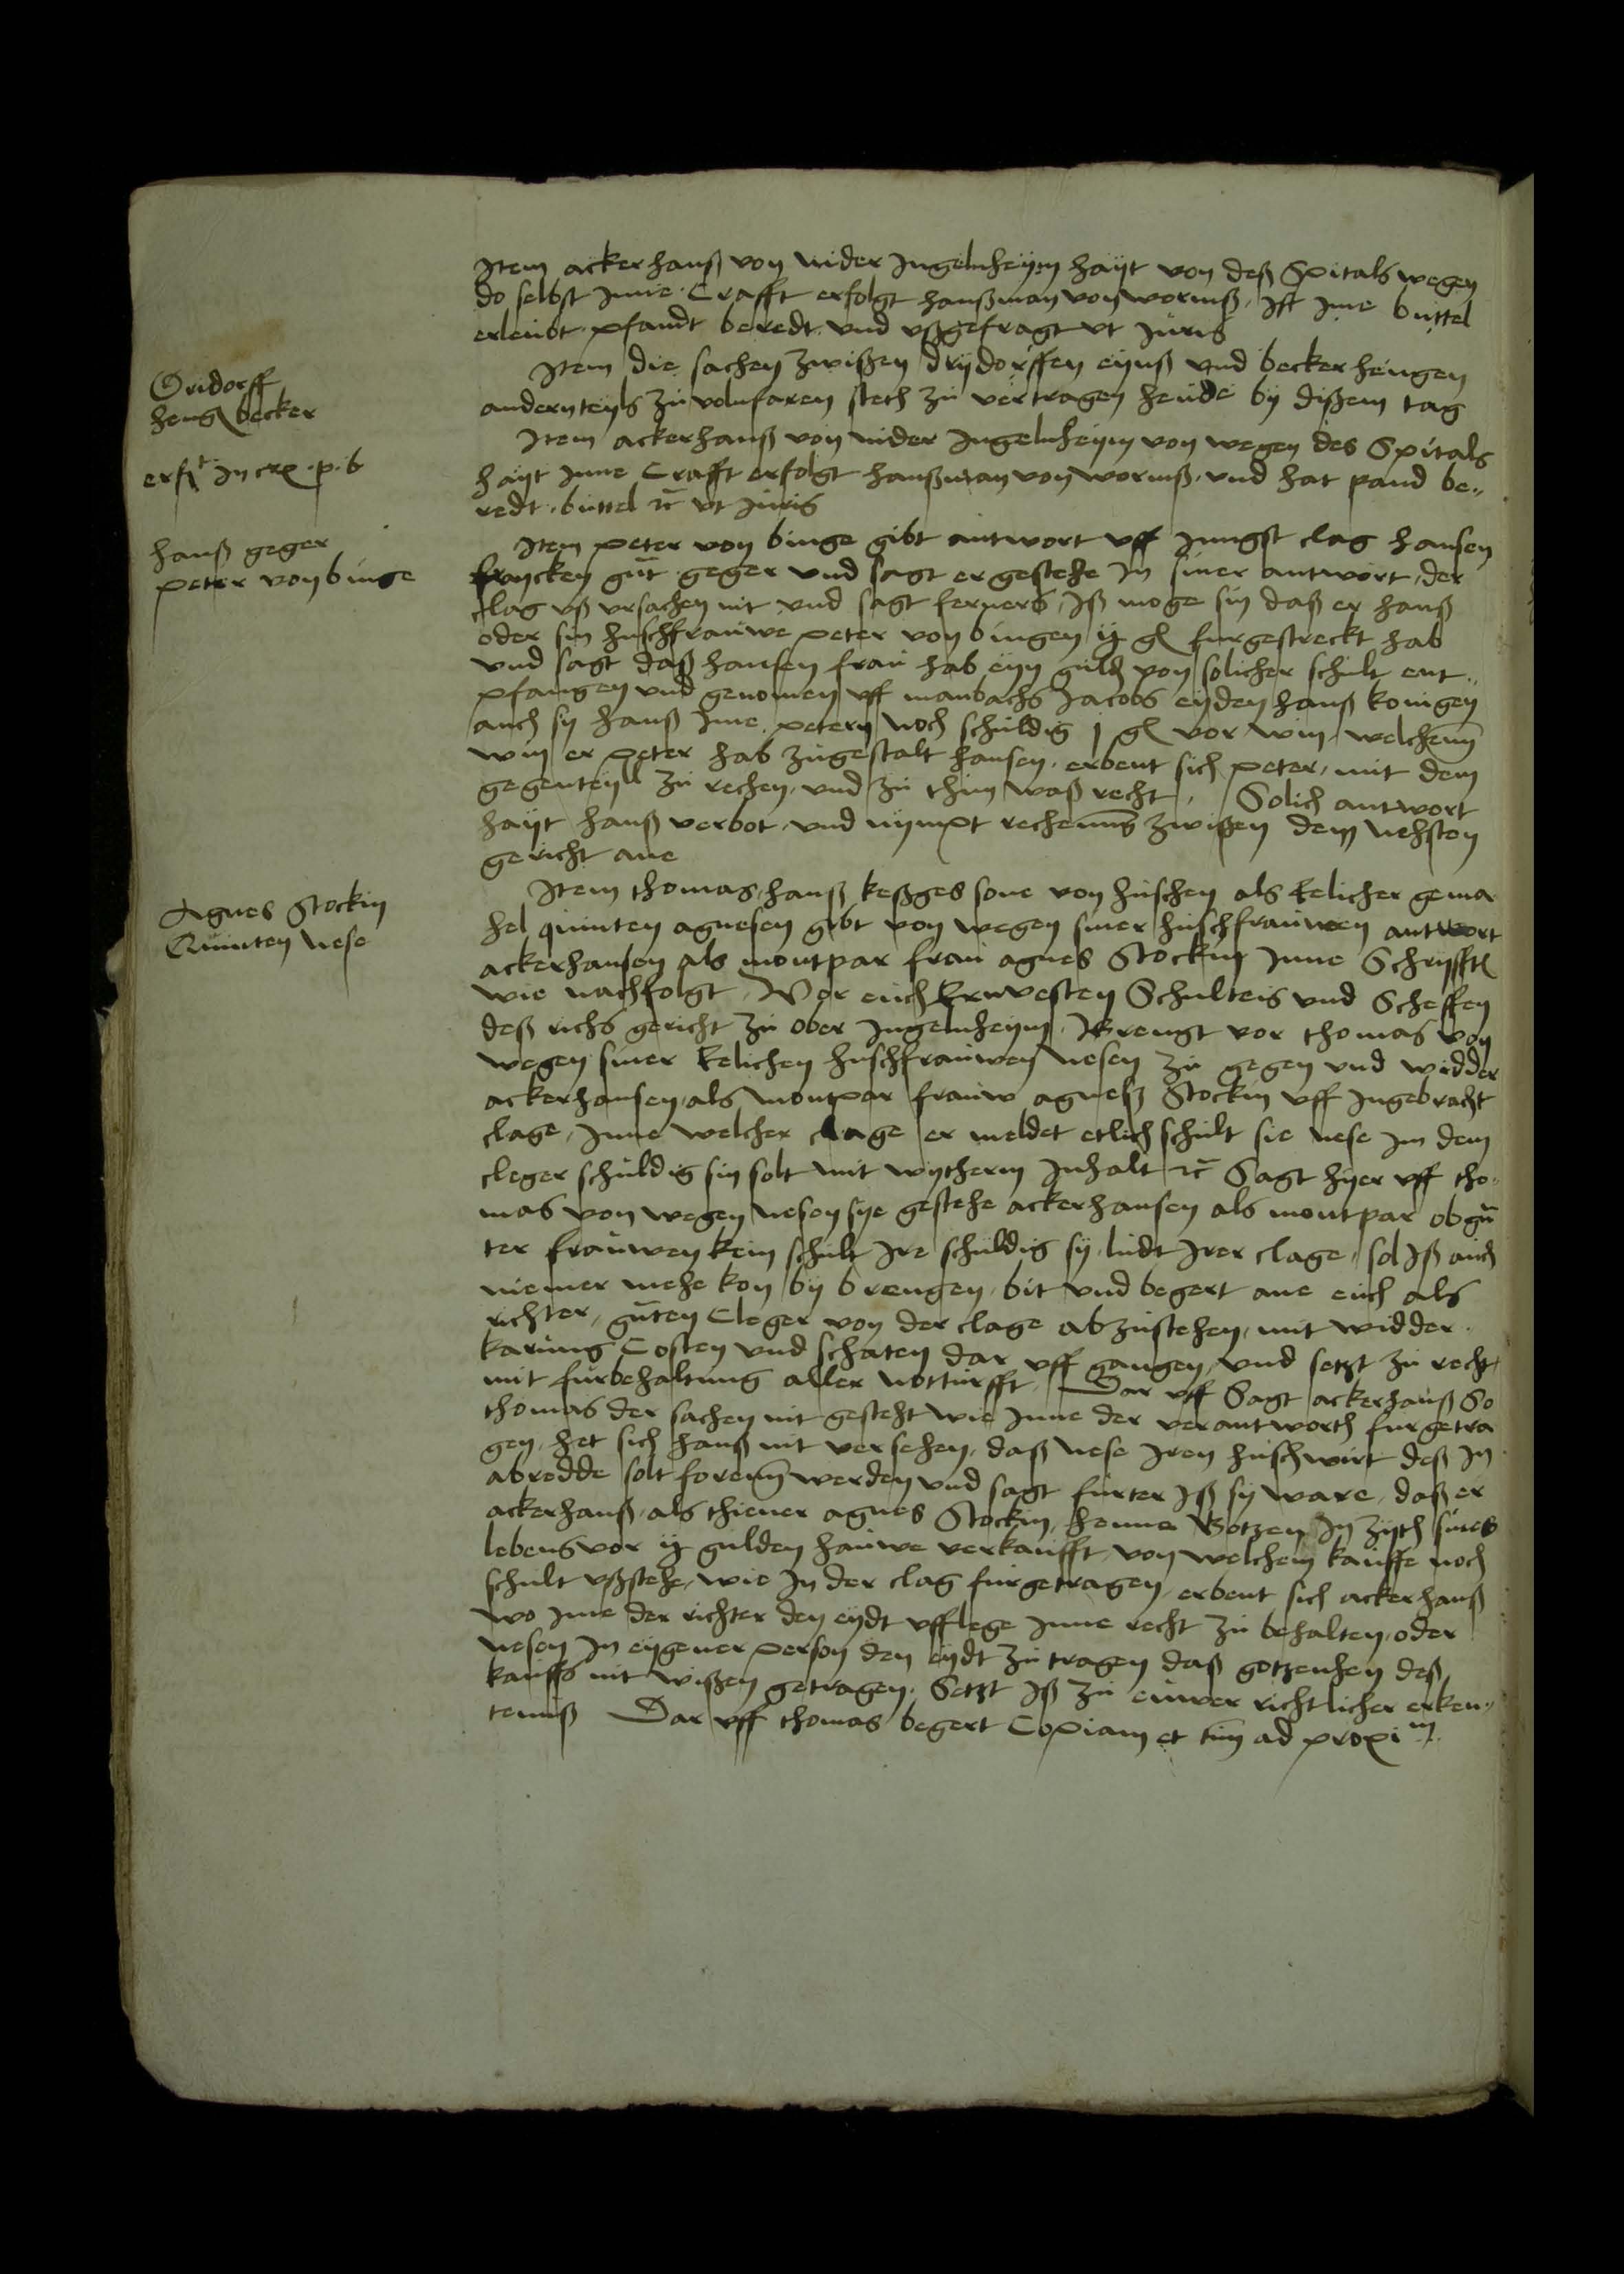 Item ackerhanß von nider Ingelnheym hayt von deß Spitals wegen
do selbst Inne Crafft erfolgt hanßman von wormß, Ist Ime büttel
erleubt pfandt beredt und ußgefragt ut Juris
Dridorff
heng becker
Item die sachen zwißen drydorffen eynß und beckerhengen
andernteyls zu volnfaren stech zu vertragen heude by dißem tag
Item ackerhanß von nider Ingelnheym von wegen des Spitals
hayt Inne Crafft erfolgt hanßman von wormß und hat pand be„
redt büttel ut Juris
hanß geger
peter von binge
Item peter von binge gibt antwort uff Jungst clag hansen
geger und sagt er gestehe In siner antwort, der
clag uß ursachen nit und sagt ferners, Iß moge sin daß er hanß
oder sin huschfrauwe peter von bingen ij gl furgestreckt hab
und sagt daß hansen frau hab eyn guld von solicher schult ent„
pfangen und genomen uff manbachs Jacobs eyden hanß konigen
auch sy hanß Ime petern noch schuldig j gl vor win, welchenn
win er peter hab zugestalt hansen, erbeut sich peter, mit dem
gegenteyll zu rechen, und zu thun waß recht, Solich antwort
hayt hanß verbot, und nympt rechenung zwißen dem nehsten
gericht ane
Agnes Stockin
Quinten nese
Item thomas, hanß keßges sone von huschen als Eelicher gema
hel quinten agnesen gibt von wegen siner huschfrauwen antwort
ackerhansen als montpar frau agnes Stockin Inne Schryfft
wie nachfolgt, Vor euch Ernvesten Schulteis und Scheffen
deß richs gericht zu ober Ingelnheym, Brengt vor thomas von
wegen siner Eelichen huschfrauwen nesen zu gegen und widder
ackerhansen, als montpar frauw agneß Stockin uff Ingebracht
clage, Inne welcher clage er meldet etlich schult sie nese Im dem
cleger schuldig sin solt mit wytherm Inhalt Sagt hyer uff tho„
mas von wegen nesen sye gestehe ackerhansen als montpar obgn
ter frauwen kein schult Ire schuldig sy, ludt Irer clage, sol Iß auch
niemer mehe kon by brengen, bit und begert ane euch als
richter, gnten Cleger von der clage abzustehen, mit widder
karung Costen und schaten dar uff gangen, und setzt zu recht,
mit furbehaltung aller notturfft, Dar uff Sagt ackerhanß So
thomas der sachen nit gesteht wie Inne der verantworth furgetra
gen, het sich hanß nit versehen, daß nese Iren huschwirt deß In
abredde solt werden und sagt furter Iß sy ware, daß er
ackerhanß, als thiener agnes Stockin, henne Gotzen In zyth sines
lebens vor ij gulden hauwe verkaufft, von welchem kauffe noch
schult ußstehe, wie In der clag furgetragen, erbeut sich ackerhanß
wo Ime der richter den eydt ufflege Inne recht zu behalten, oder
nesen In eygener person den eydt zu tragen daß gotzenhen deß
kauffs nit wißen getragen, Setzt Iß zu euwer richtlicher erken„
tenuß Dar uff thomas begert Copiam et tim ad proxim